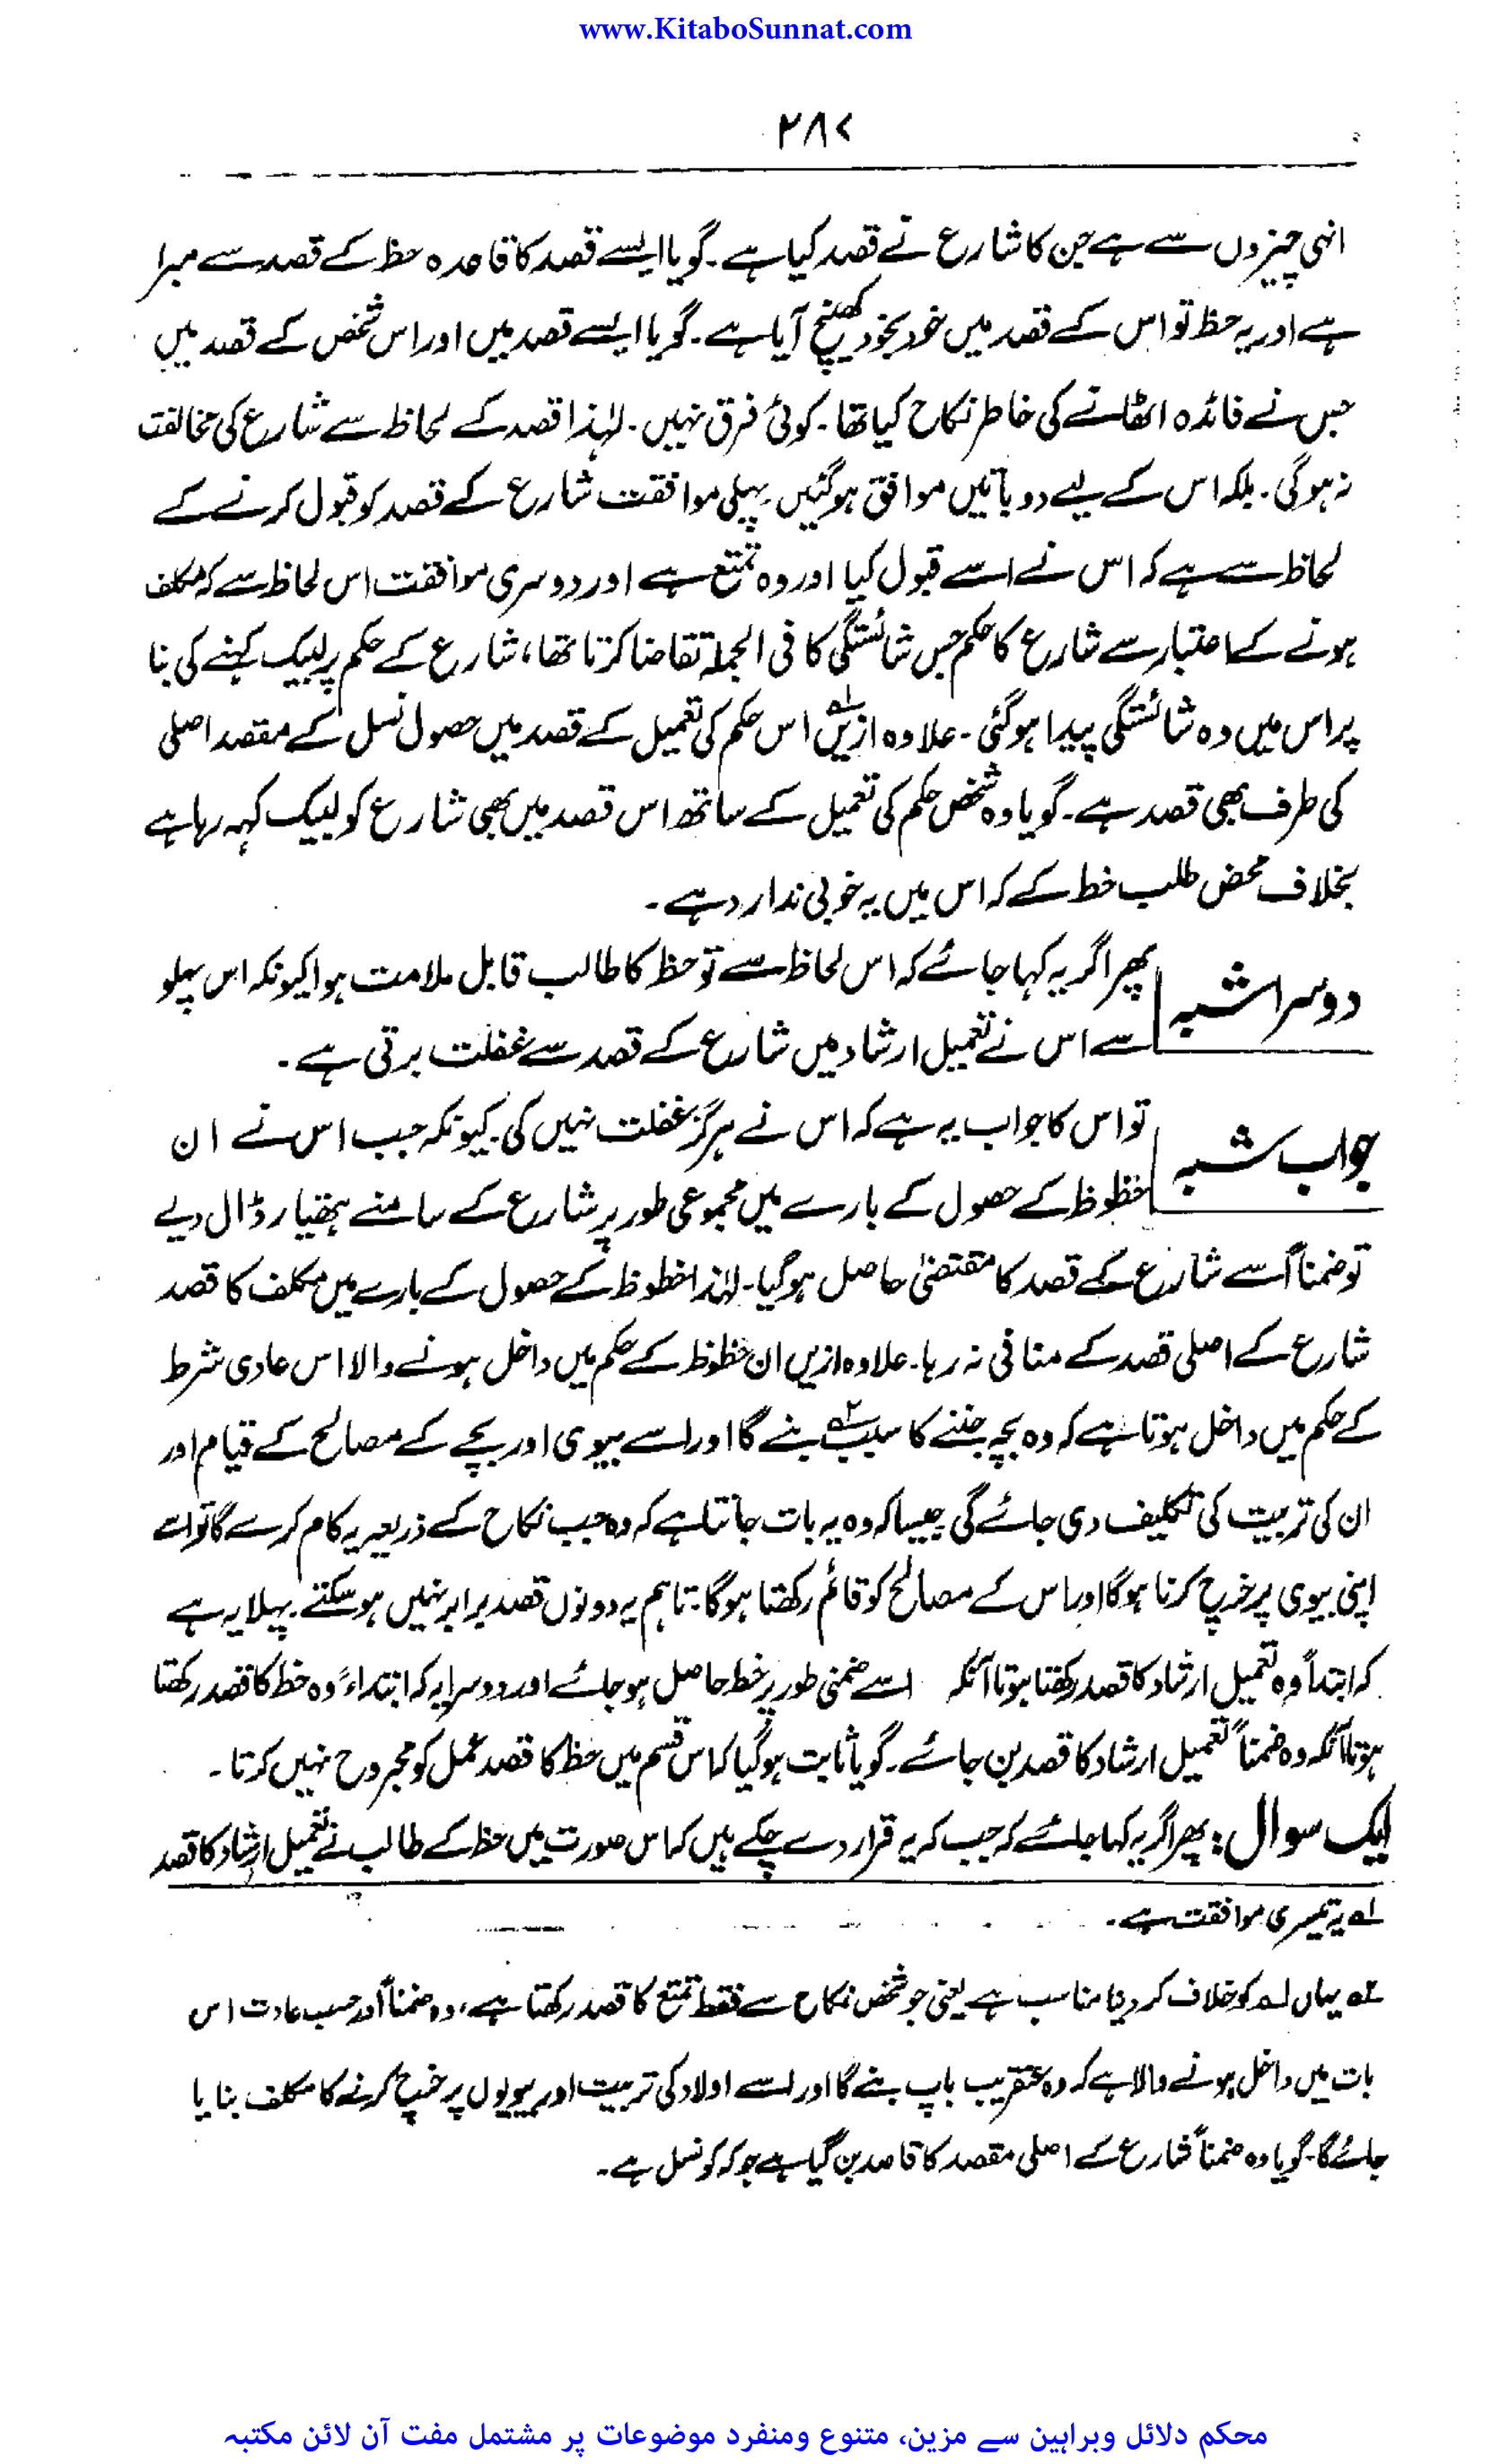 www.KitaboSunnat.com
۲۸۷
انہی چیزوں سے ہے جن کا شارع نے قصد کیا ہے۔ گویا ایسے قصد کا قاعدہ حظ کے قصد سے مبرا
ہے اور یہ حظ تو اس کے قصد میں خود بخود کھینچ آیا ہے۔ گویا ایسے قصد میں اور اس شخص کے قصد میں
جس نے فائدہ اٹھانے کی خاطر نکاح کیا تھا۔ کوئی فرق نہیں۔ لہٰذا قصد کے لحاظ سے شارع کی مخالفت
نہ ہوگی۔ بلکہ اس کے لیے دو باتیں موافق ہوگئیں۔ پہلی موافقت شارع کے قصد کو قبول کرنے کے
لحاظ سے ہے کہ اس نے اسے قبول کیا اور وہ تمتع ہے اور دوسری موافقت اس لحاظ سے کہ مکلف
ہونے کے اعتبار سے شارع کا حکم جس شائستگی کا فی الجملہ تقاضا کرتا تھا، شارع کے حکم پر لبیک کہنے کی بنا
پر اس میں وہ شائستگی پیدا ہوگئی۔ علاوہ ازیں۱؎ اس حکم کی تعمیل کے قصد میں حصول نسل کے مقصد اصلی
کی طرف بھی قصد ہے۔ گویا وہ شخص حکم کی تعمیل کے ساتھ اس قصد میں بھی شارع کو لبیک کہہ رہا ہے
بخلاف محض طلب خط کے کہ اس میں یہ خوبی ندارد ہے۔
دوسرا شبہ پھر اگر یہ کہا جائے کہ اس لحاظ سے تو حظ کا طالب قابل ملامت ہوا کیونکہ اس پہلو
سے اس نے تعمیل ارشاد میں شارع کے قصد سے غفلت برتی ہے۔
جواب شبہ تو اس کا جواب یہ ہے کہ اس نے ہرگز غفلت نہیں کی۔ کیونکہ جب اس نے ان
حظوظ کے حصول کے بارے میں مجموعی طور پر شارع کے سامنے ہتھیار ڈال دیے
تو ضمناً اسے شارع کے قصد کا مقتضیٰ حاصل ہوگیا۔ لہٰذا خطوظ کے حصول کے بارے میں مکلف کا قصد
شارع کے اصلی قصد کے منافی نہ رہا۔ علاوہ ازیں ان حظوظ کے حکم میں داخل ہونے والا اس عادی شرط
کے حکم میں داخل ہوتا ہے کہ وہ بچہ جننے کا سبب۲؎ بنے گا اور اسے بیوی اور بچے کے مصالح کے قیام اور
ان کی تربیت کی تکلیف دی جائے گی جیسا کہ وہ یہ بات جانتا ہے کہ وہ جب نکاح کے ذریعہ یہ کام کرے گا تو اسے
اپنی بیوی پر خرچ کرنا ہوگا اور اس کے مصالح کو قائم رکھنا ہوگا: تاہم یہ دونوں قصد برابر نہیں ہوسکتے۔ پہلا یہ ہے
کہ ابتداً وہ تعمیل ارشاد کا قصد رکھتا ہو تا آنکہ اسے ضمنی طور پر خط حاصل ہو جائے اور دوسرا یہ کہ ابتداءً وہ خط کا قصد رکھتا
ہو تا آنکہ وہ ضمناً تعمیل ارشاد کا قصد بن جائے۔ گویا ثابت ہوگیا کہ اس قسم میں حظ کا قصد عمل کو مجروح نہیں کرتا۔
ایک سوال: پھر اگر یہ کہا جائے کہ جب کہ یہ قرار دے چکے ہیں کہ اس صورت میں حظ کے طالب نے تعمیل ارشاد کا قصد
۱؎ یہ تیسری موافقت ہے۔
۲؎ یہاں لہ کو خلاف کر دینا مناسب ہے یعنی جو شخص نکاح سے فقط تمتع کا قصد رکھتا ہے، وہ ضمناً اور حسب عادت اس
بات میں داخل ہونے والا ہے کہ وہ عنقریب باپ بنے گا اور اسے اولاد کی تربیت اور بیویوں پر خرچ کرنے کا مکلف بنایا
جائے گا۔ گویا وہ ضمناً شارع کے اصلی مقصد کا قاصد بن گیا ہے جو کہ کو نسل ہے۔
محکم دلائل وبراہین سے مزین، متنوع ومنفرد موضوعات پر مشتمل مفت آن لائن مکتبہ